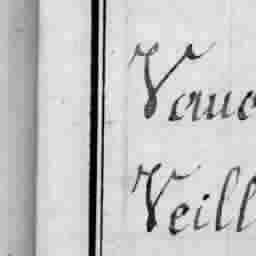 Vauc
Veill